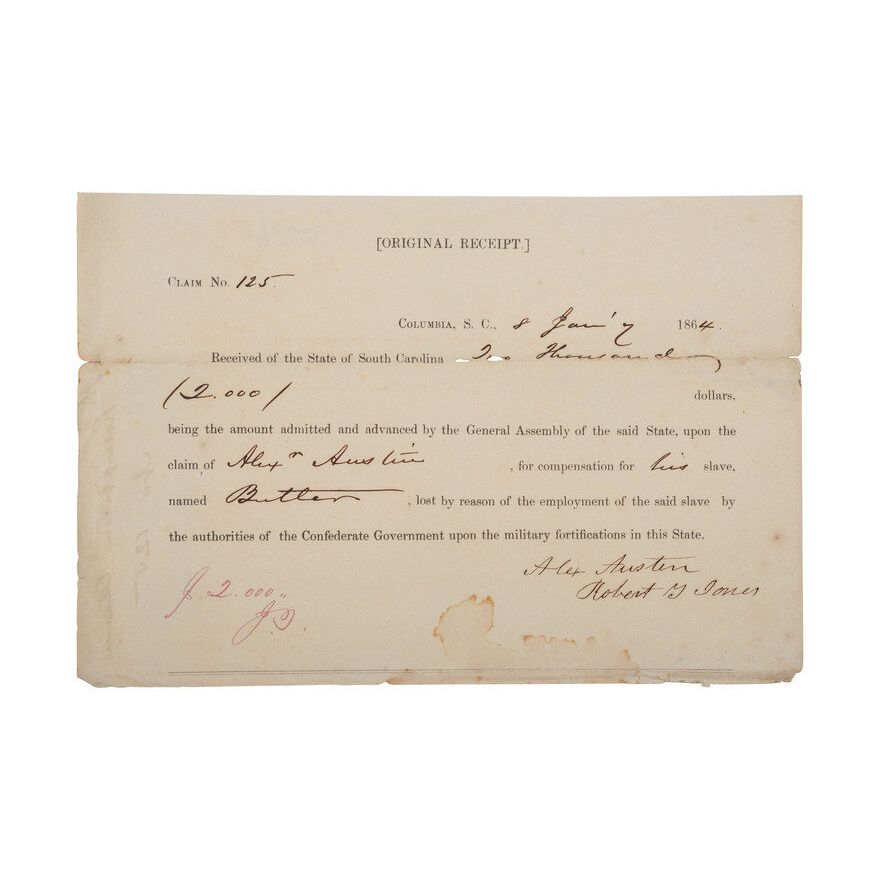 [ORIGINAL RECEIPT.]
CLAIM No. 125.
COLUMBIA, S. C., 8 Jan'y 1864.
Received of the State of South Carolina Two Thousand
(2.000) dollars,
being the amount admitted and advanced by the General Assembly of the said State, upon the
claim of Alexr Austin , for compensation for his slave,
named Butler , lost by reason of the employment of the said slave by
the authorities of the Confederate Government upon the military fortifications in this State.
Alex Austen
Robert Y Jones
$ 2.000..